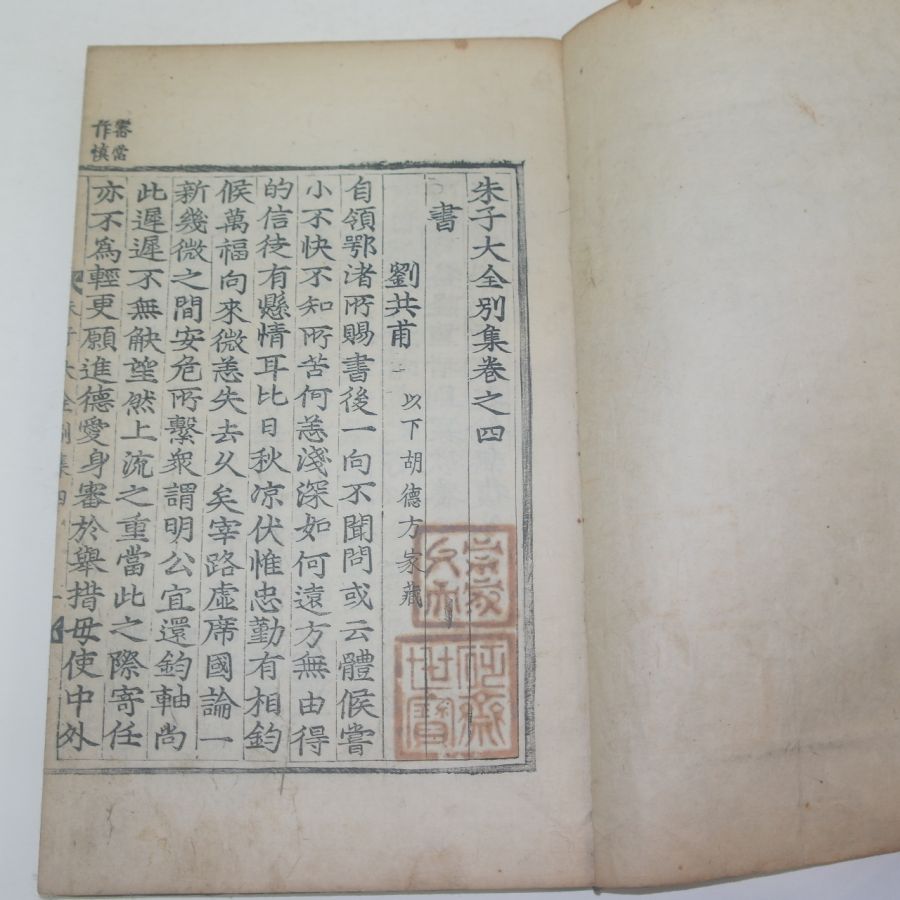 朱子大全別集卷之四
書
劉共甫 以下胡德方家藏
自領鄂渚所賜書後一向不聞問或云體候嘗
小不快不知所苦何恙淺深如何遠方無由得
的信徒有懸情耳比日秋凉伏惟忠勤有相鈞
候萬福向來微恙失去久矣宰路虛席國論一
新幾微之間安危所繫衆謂明公宜還鈞軸尚
此遲遲不無觖望然上流之重當此之際寄任
亦不爲輕更願進德愛身審於擧措毋使中外
審當
作愼
朱子大全別集四 一